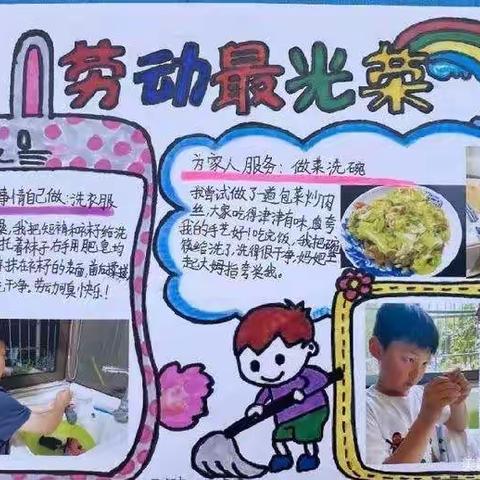 劳动最光荣
事情自己做：洗衣服
我把短裤和袜子给洗
着袜子右手用肥皂均
干净。劳动可真快乐！
为家人服务：做菜洗碗
我尝试做了一道包菜炒肉
丝,大家吃得津津有味,直夸
我的手艺好！吃完饭,我把碗
筷给洗了,洗得很干净,妈妈
起大姆指夸奖我。